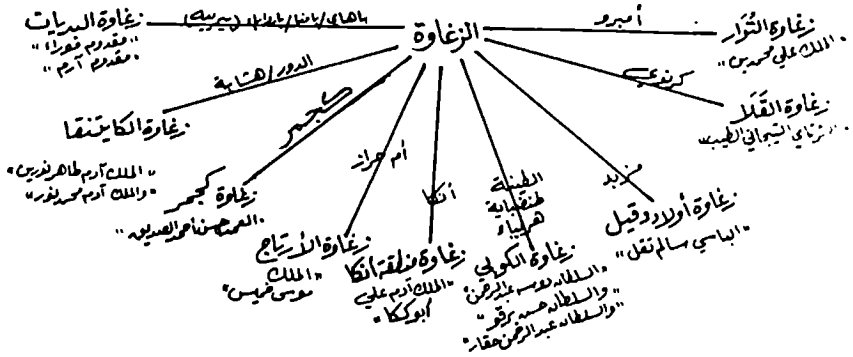 الزغاوة
أمبرو
زغاوة التُوَار
"الملك علي محمدين"
كرنوي
زغاوة القَلَا
"شرتاي التيجاني الطيب"
مزبد
زغاوة أولاد دقيل
"الباسي سالم تقل"
الطينة
طنقباية
هريباء
زغاوة الكوبي
"السلطان دوسه عبدالرحمن"
"والسلطان حسن برقو"
"والسلطان عبدالرحمن حقار"
أنكا
زغاوة منطقة أنكا
"الملك آدم علي
أبوككا"
أم حراز
زغاوة الأرتاج
"الملك
موسى خميس"
كجمر
زغاوة كجمر
"العمدة حسن أحمد الصديق"
الدور/هشابة
زغاوة الكايتنقا
"الملك آدم طاهر نورين"
"والملك آدم محمد نور"
زغاوة البديات
"مقدوم قوراء"
"مقدوم آرم"